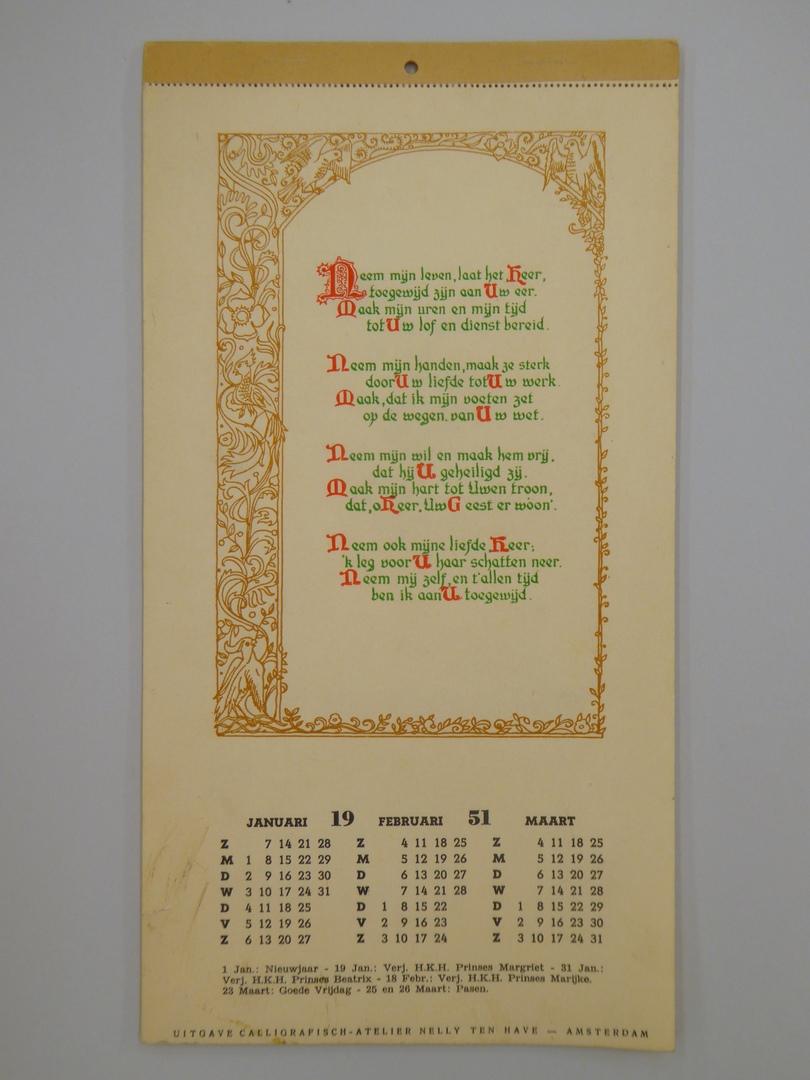 Neem mijn leven, laat het Heer,
toegewijd zijn aan Uw eer.
Maak mijn uren en mijn tijd
tot Uw lof en dienst bereid.
Neem mijn handen, maak ze sterk
door Uw liefde tot Uw werk.
Maak, dat ik mijn voeten zet
op de wegen. van Uw wet.
Neem mijn wil en maak hem vrij,
dat hij U geheiligd zij.
Maak mijn hart tot Uwen troon,
dat, o Heer, Uw Geest er woon'.
Neem ook mijne liefde Heer;
'k leg voor U haar schatten neer.
Neem mij zelf, en t'allen tijd
ben ik aan U toegewijd.
JANUARI 19 FEBRUARI 51 MAART
Z 7 14 21 28 Z 4 11 18 25 Z 4 11 18 25
M 1 8 15 22 29 M 5 12 19 26 M 5 12 19 26
D 2 9 16 23 30 D 6 13 20 27 D 6 13 20 27
W 3 10 17 24 31 W 7 14 21 28 W 7 14 21 28
D 4 11 18 25 D 1 8 15 22 D 1 8 15 22 29
V 5 12 19 26 V 2 9 16 23 V 2 9 16 23 30
Z 6 13 20 27 Z 3 10 17 24 Z 3 10 17 24 31
1 Jan.: Nieuwjaar - 19 Jan.: Verj. H.K.H. Prinses Margriet - 31 Jan.:
Verj. H.K.H. Prinses Beatrix - 18 Febr.: Verj. H.K.H. Prinses Marijke.
23 Maart: Goede Vrijdag - 25 en 26 Maart: Pasen.
UITGAVE CALLIGRAFISCH-ATELIER NELLY TEN HAVE — AMSTERDAM